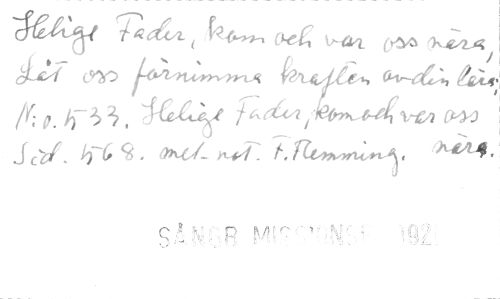 Helige Fader, kom och var oss nära,
Låt oss förnimma kraften av din lära;
N:o. 533. Helige Fader, kom och var oss
Sid. 568. mel. not. F. Flemming. nära.
SÅNGR MISSIONSF 192